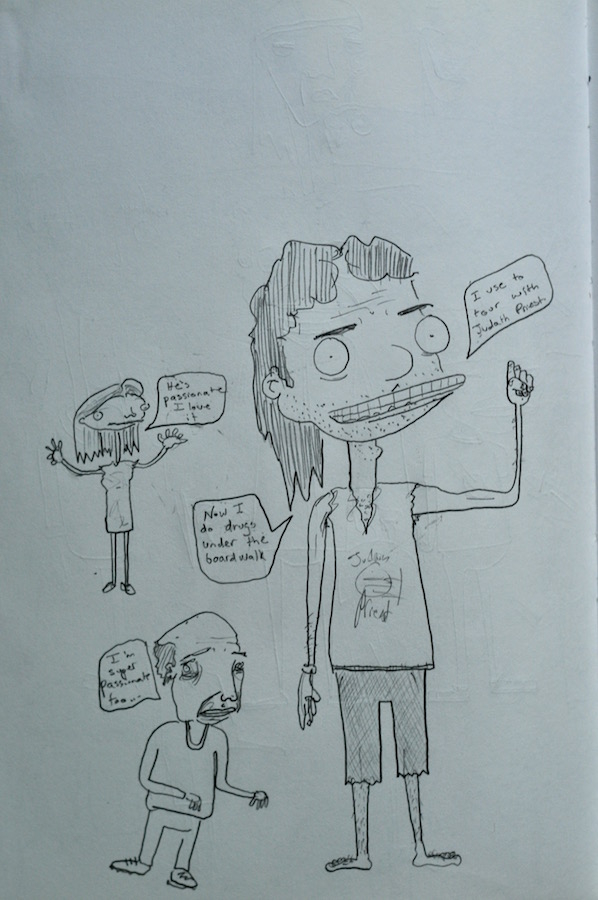 I use to
tour with
Judath Priest
He's
passionate
I love
it
Now I
do drugs
under the
boardwalk
Judas
Priest
I'm
super
passionate
too...